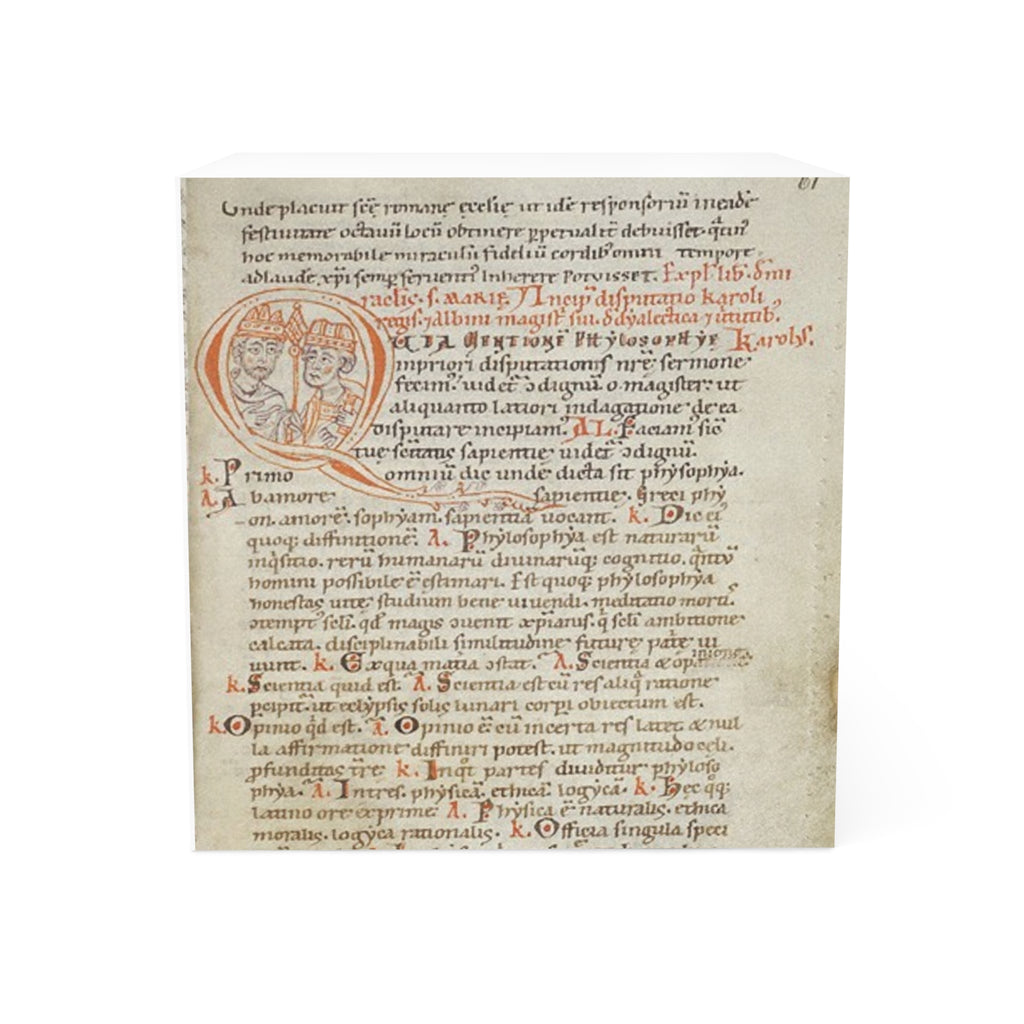 61
Unde placuit scę romanę ęcclię ut idē responsoriū in eadē
festiuitate octauū locū obtinere ppetualit debuisset. qtin'
hoc memorabile miraculū fideliū cordib' omni tempore
ad laudē xpi semp seruent' inherere potuisset. Expl' lib' dnī
raclis. s. MARIE. Incip disputatio karoli
regis. ⁊ albini magistri sui. d dyalectica ⁊ uirtutib'.
QUIA MENTIONĒ PHYLOSOPHYE Karolus.
in priori disputationis nrę sermone
fecim'. uidet ↄdignū o magister ut
aliquanto latiori indagatione de ea
disputare incipiam'. AL. Faciam' sic
tuę scītatis sapientie uidet ↄdignū.
k. Primo omniū dic unde dicta sit phylosophya.
A. Ab amore sapientie. Greci phy
on. amorē. sophyam. sapientiā uocant. k. Dic ei'
quoq; diffinitionē. A. Phylosophya est naturarū
inqsitio. rerū humanarū diuinarūq; cognitio. qntū
homini possibile ē estimari. Est quoq; phylosophya
honestas uitę. studium bene uiuendi. meditatio mortis.
ↄtempt' scli. qd magis ↄuenit xpianis. q scli ambitione
calcata. disciplinabili similitudine futurę patrię ui
uunt. k. Ex qua matia ↄstat. A. Scientia & opinione.
k. Scientia quid est. A. Scientia est cū res aliq ratione
pcipit. ut eclypsis solis lunari corpi obiectum est.
k. Opinio qd est. A. Opinio ē cū incerta res latet & nul
la affirmatione diffiniri potest. ut magnitudo celi.
pfunditas trę k. In qt partes diuiditur phyloso
phya. A. In tres. physicā. ethicā. logycā. k. Hec qq;
latino ore exprime. A. Physica ē naturalis. ethica
moralis. logyca rationalis. k. Officia singula speci